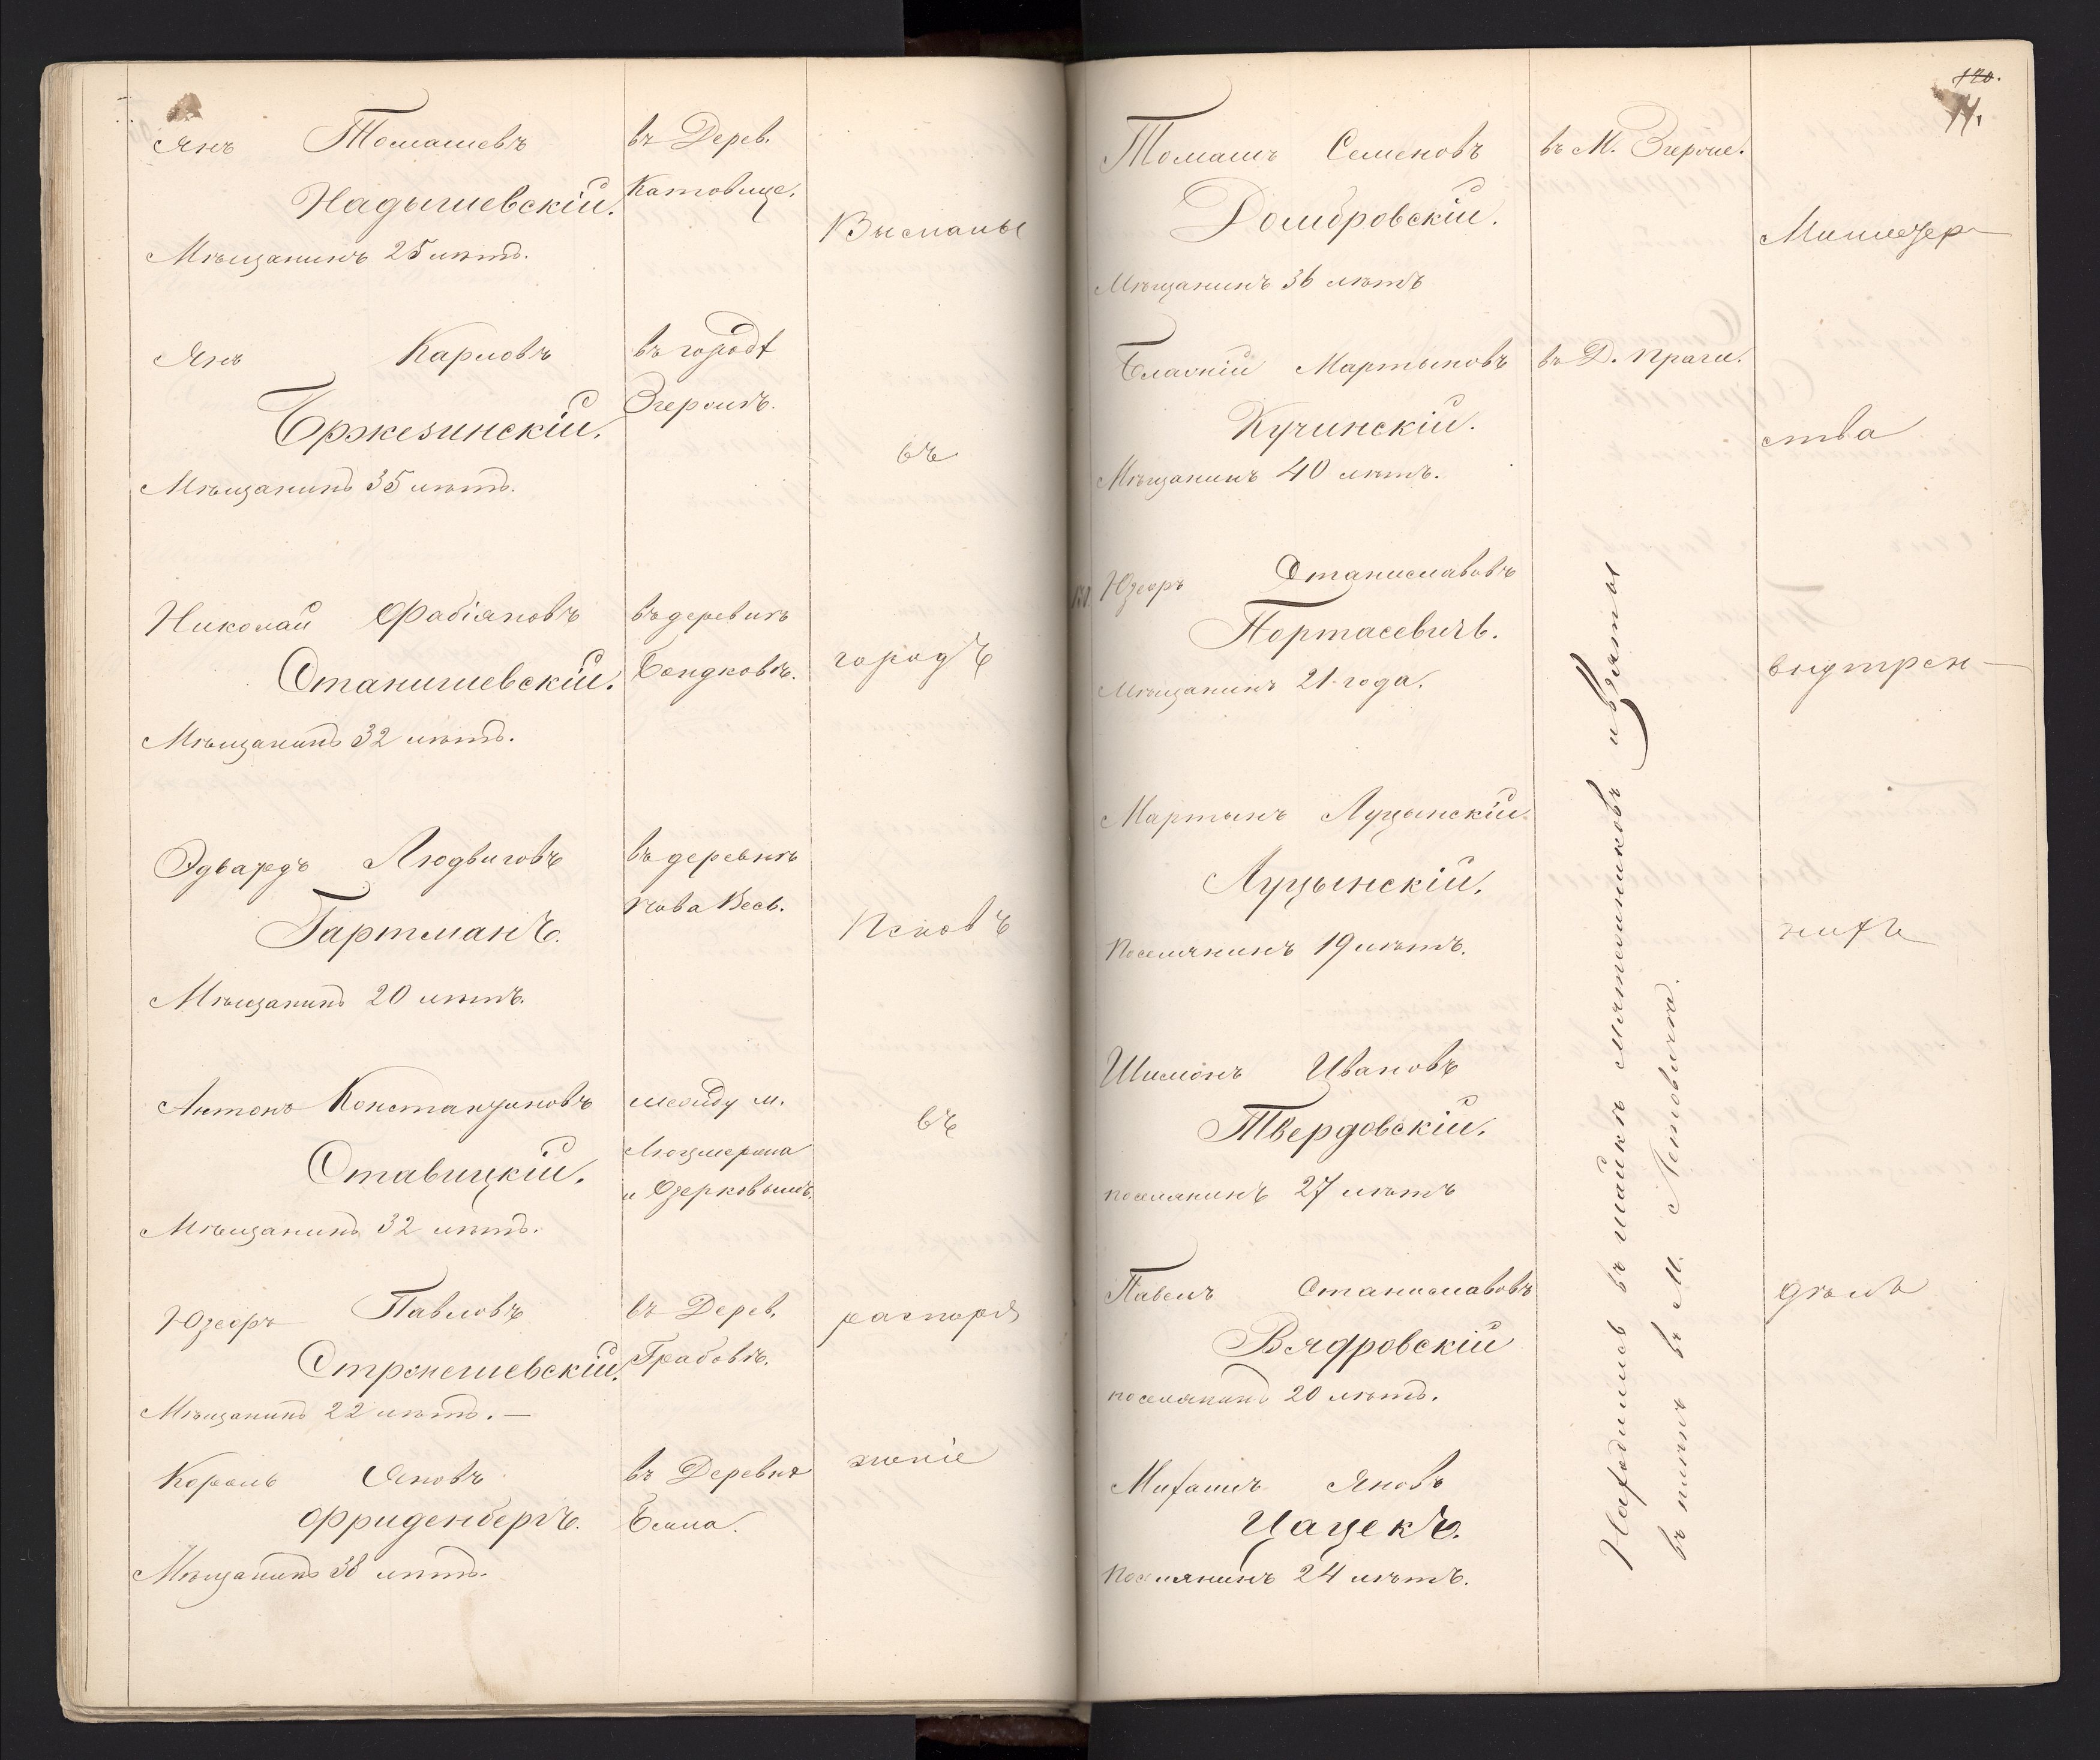 Янъ Томашевъ
Надышевскій.
Мѣщанинъ 25 лѣтъ.
въ Дерев.
Катовице.
Высланы
Янъ Карловъ
Бржезинскій.
Мѣщанинъ 35 лѣтъ.
въ городѣ
Згержѣ.
въ
Николай Фабіановъ
Станишевскій.
Мѣщанинъ 32 лѣтъ.
въ деревнѣ
Бендковѣ.
городъ
Эдвардъ Людвиговъ
Гартманъ.
Мѣщанинъ 20 лѣтъ.
въ деревнѣ
Нова Весь.
Псковъ
Антонъ Константиновъ
Ставицкій.
Мѣщанинъ 32 лѣтъ.
между м.
Люцмержа
и Озерковымъ.
въ
Юзефъ Павловъ
Стржешевскій.
Мѣщанинъ 22 лѣтъ. —
въ Дерев.
Грабовѣ.
распоря
Кароль
Фриденбергъ.
Мѣщанинъ 38 лѣтъ.
въ Деревнѣ
женіе
120.
Томашъ Семеновъ
Домбровскій.
Мѣщанинъ 36 лѣтъ
въ М. Згерже.
Министер-
Мартыновъ
Кучинскій.
Мѣщанинъ 40 лѣтъ.
въ Д. Праги.
ства
Юзефъ Станиславовъ
Портасевичъ.
Мѣщанинъ 21 года.
внутрен-
Мартынъ Луцынскій.
Луцынскій.
Поселянинъ 19 лѣтъ.
нихъ
Шимонъ Ивановъ
Твердовскій.
поселянинъ 27 лѣтъ
Павелъ Станиславовъ
Вядровскій
поселянинъ 20 лѣтъ.
дѣлъ
Михаилъ Яновъ
Цацекъ.
Поселянинъ 24 лѣтъ.
Находились въ шайкѣ мятежниковъ и взяты
въ плѣнъ въ М.